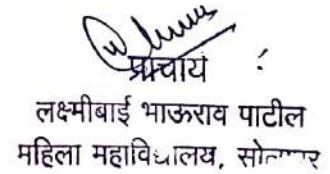 प्राचार्य
लक्ष्मीबाई भाऊराव पाटील
महिला महाविद्यालय,